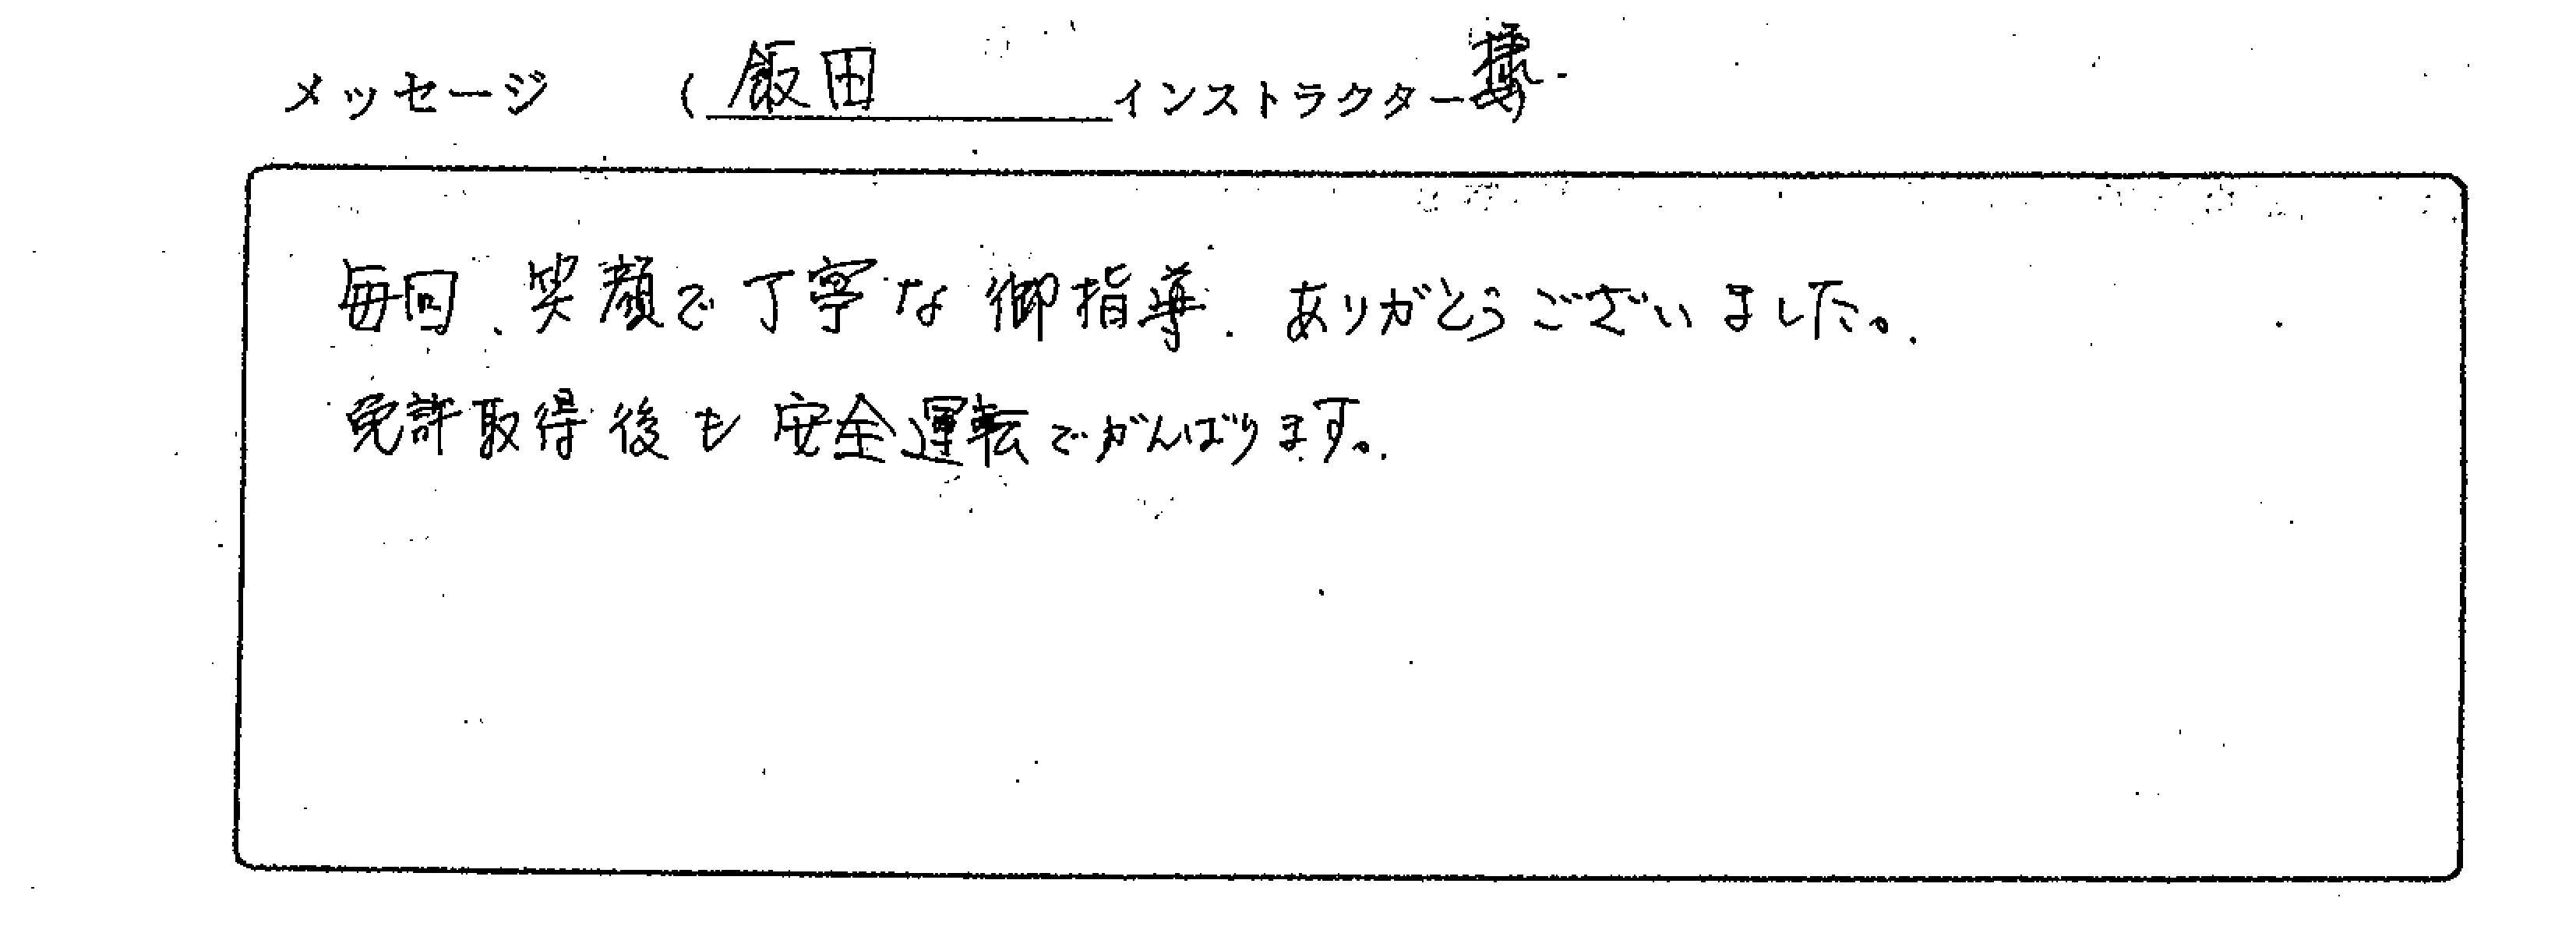 メッセージ （飯田 インストラクター様
毎回、笑顔で丁寧な御指導、ありがとうございました。
免許取得後も安全運転でがんばります。